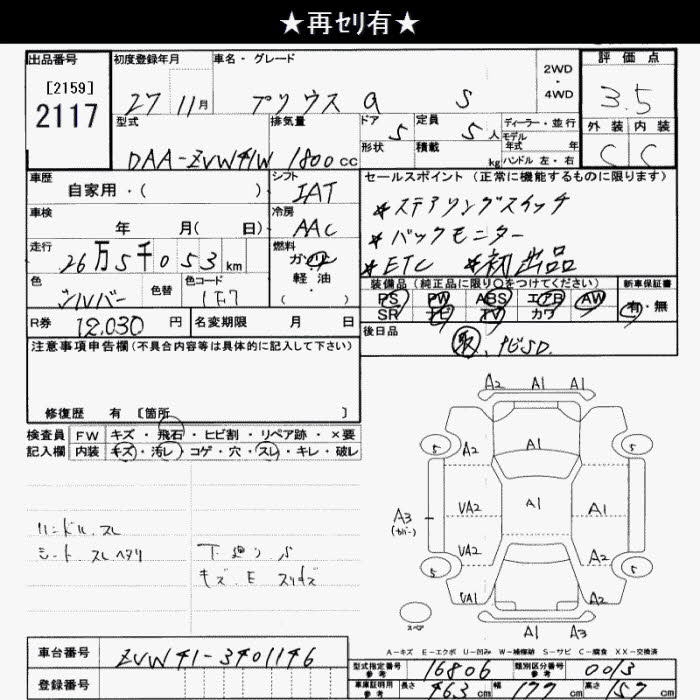 ★再ｾﾘ有★
出品番号 初度登録年月 車名・グレード 2WD・4WD 評価点
[2159]
2117
27 11月 プリウスα S
3.5
型式 排気量 ドア 定員 ディーラー・並行 外装 内装
DAA-ZVW41W 1800cc 5 5人 モデル年式 年 C C
形状 積載 kg ハンドル 左・右
車歴 シフト セールスポイント（正常に機能するものに限ります）
自家用・( ) IAT
＊ステアリングスイッチ
車検 冷房
年 月( 日) AAC ＊バックモニター
走行 燃料 ＊ETC ＊初出品
26万5千053km ガソリン
軽油・( )
色 色替 色コード 装備品（純正品に限り○をつけてください） 新車保証書
シルバー 1F7 PS PW ABS エアB AW 有・無
SR ナビ TV カワ
R券 12,030円 名変期限 月 日 後日品
取、ナビSD.
注意事項申告欄（不具合内容等は具体的に記入して下さい）
修復歴 有 [箇所 ]
検査員記入欄 FW キズ・飛石・ヒビ割・リペア跡・×要
内装 キズ・汚レ・コゲ・穴・スレ・キレ・破レ
ハンドル スレ
シート スレ ヘタリ
下廻り S
キズ.E スリキズ
A2 A1 A1
5 A2 A1 5
A3 (カバー) UA2 A1 A1
UA2 A2
5 UA2 A2 5
スペア A1 A3
A-キズ E-エクボ U-凹み W-補修跡 S-サビ C-腐食 XX-交換済
車台番号 ZVW41-3401146
登録番号
型式指定番号 参考 16806 類別区分番号 参考 0013
車庫証明用 参考 長さ 46.3cm 幅 177cm 高さ 157cm